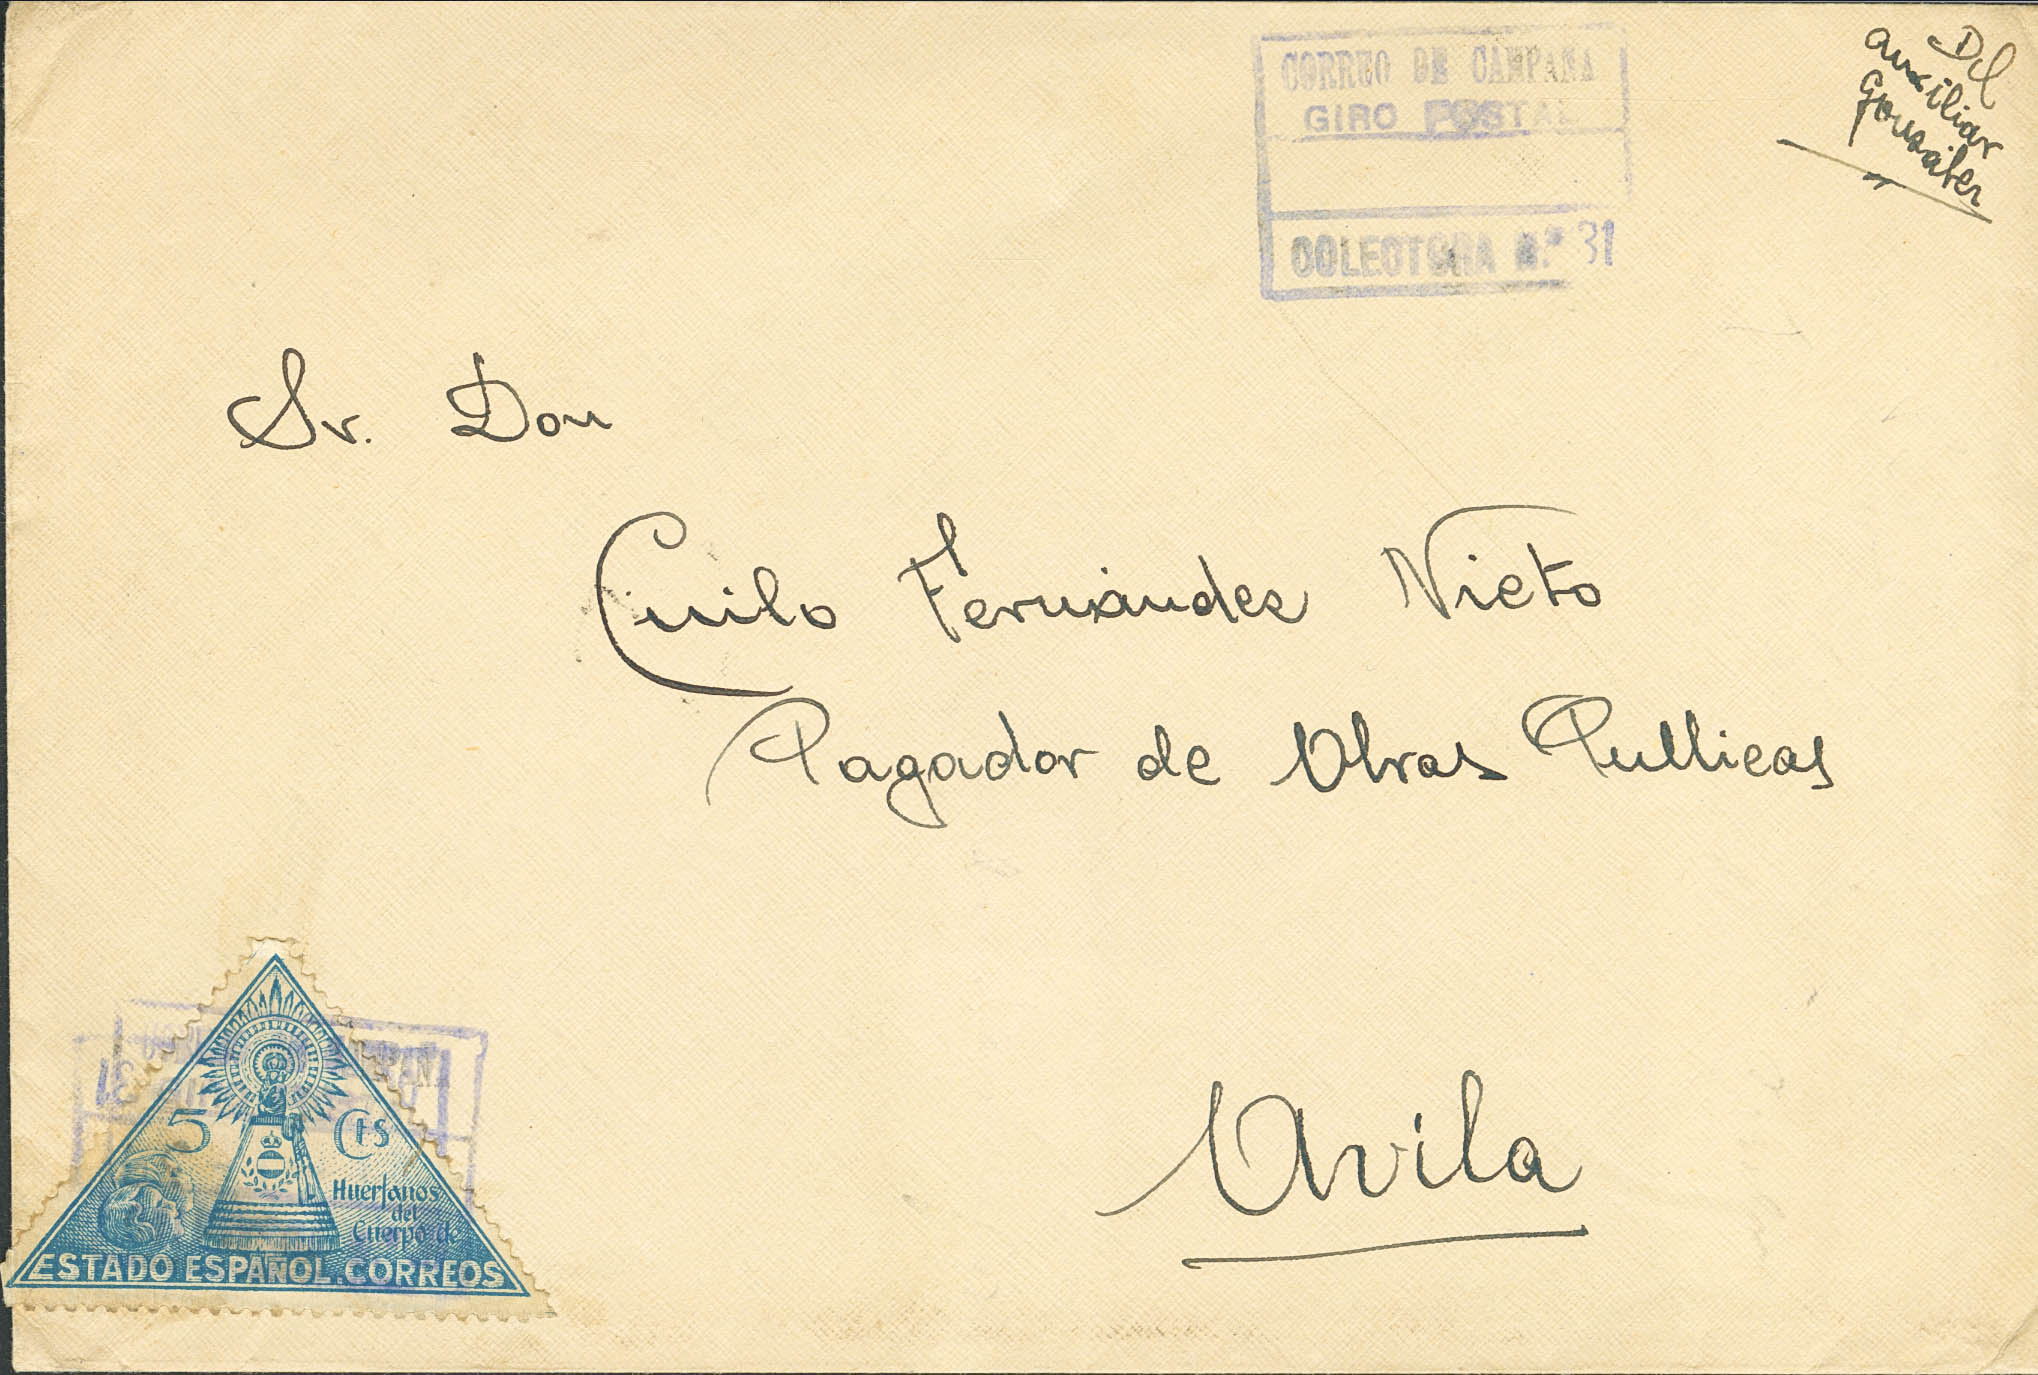 CORREO DE CAMPAÑA
GIRO POSTAL
COLECTORA N.º 31
Del
auxiliar
Gonzalez
Sr. Don
Cirilo Fernández Nieto
Pagador de Obras Publicas
Avila
5 Cts
Huerfanos
del
Cuerpo de
ESTADO ESPAÑOL.CORREOS
31